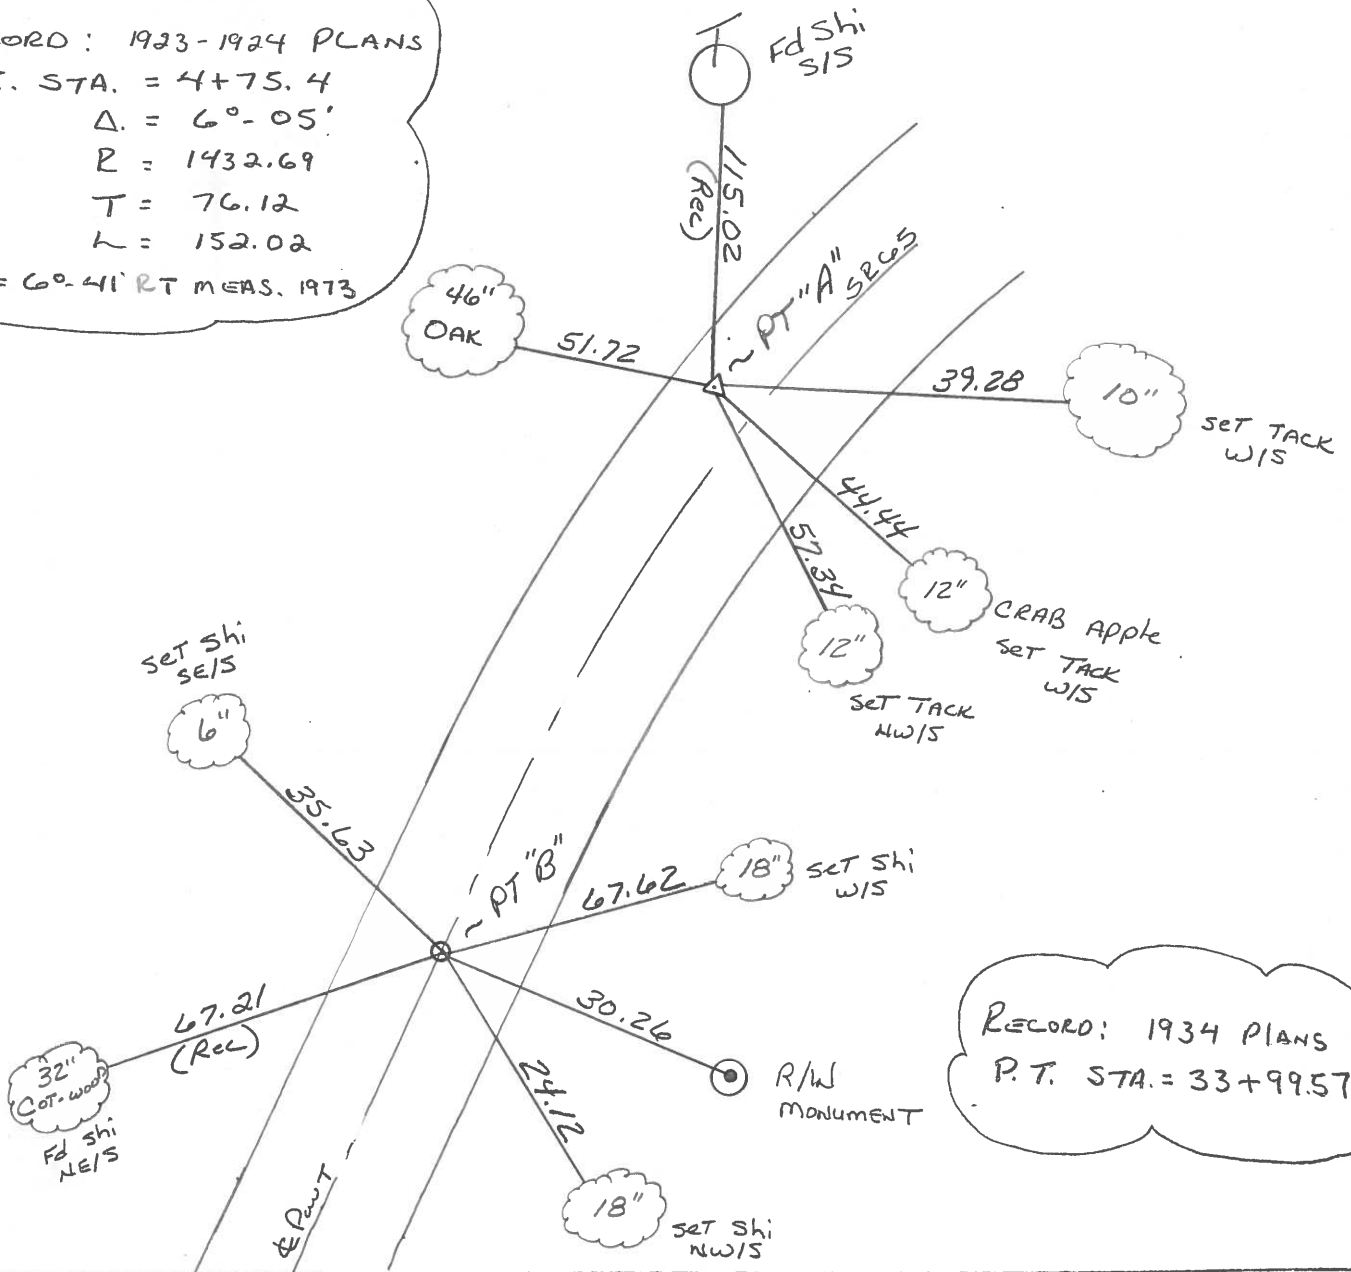 ORD : 1923-1924 PLANS
. STA. = 4+75.4
Δ. = 6°-05'
R = 1432.69
T = 76.12
L = 152.02
= 6°-41' RT MEAS. 1973
Fd Shi
S/S
115.02
(Rec)
~ PT "A"
SR 65
46"
OAK
51.72
39.28
10"
SET TACK
W/S
44.44
57.34
12"
CRAB APPle
SET TACK
W/S
12"
SET TACK
NW/S
SET Shi
SE/S
6"
35.63
~ PT "B"
67.62
18"
SET Shi
W/S
67.21
(Rec)
32"
COT-WOOD
Fd Shi
NE/S
30.26
R/W
MONUMENT
24.12
18"
SET Shi
NW/S
℄ PavT
RECORD: 1934 PlANS
P.T. STA. = 33+99.57